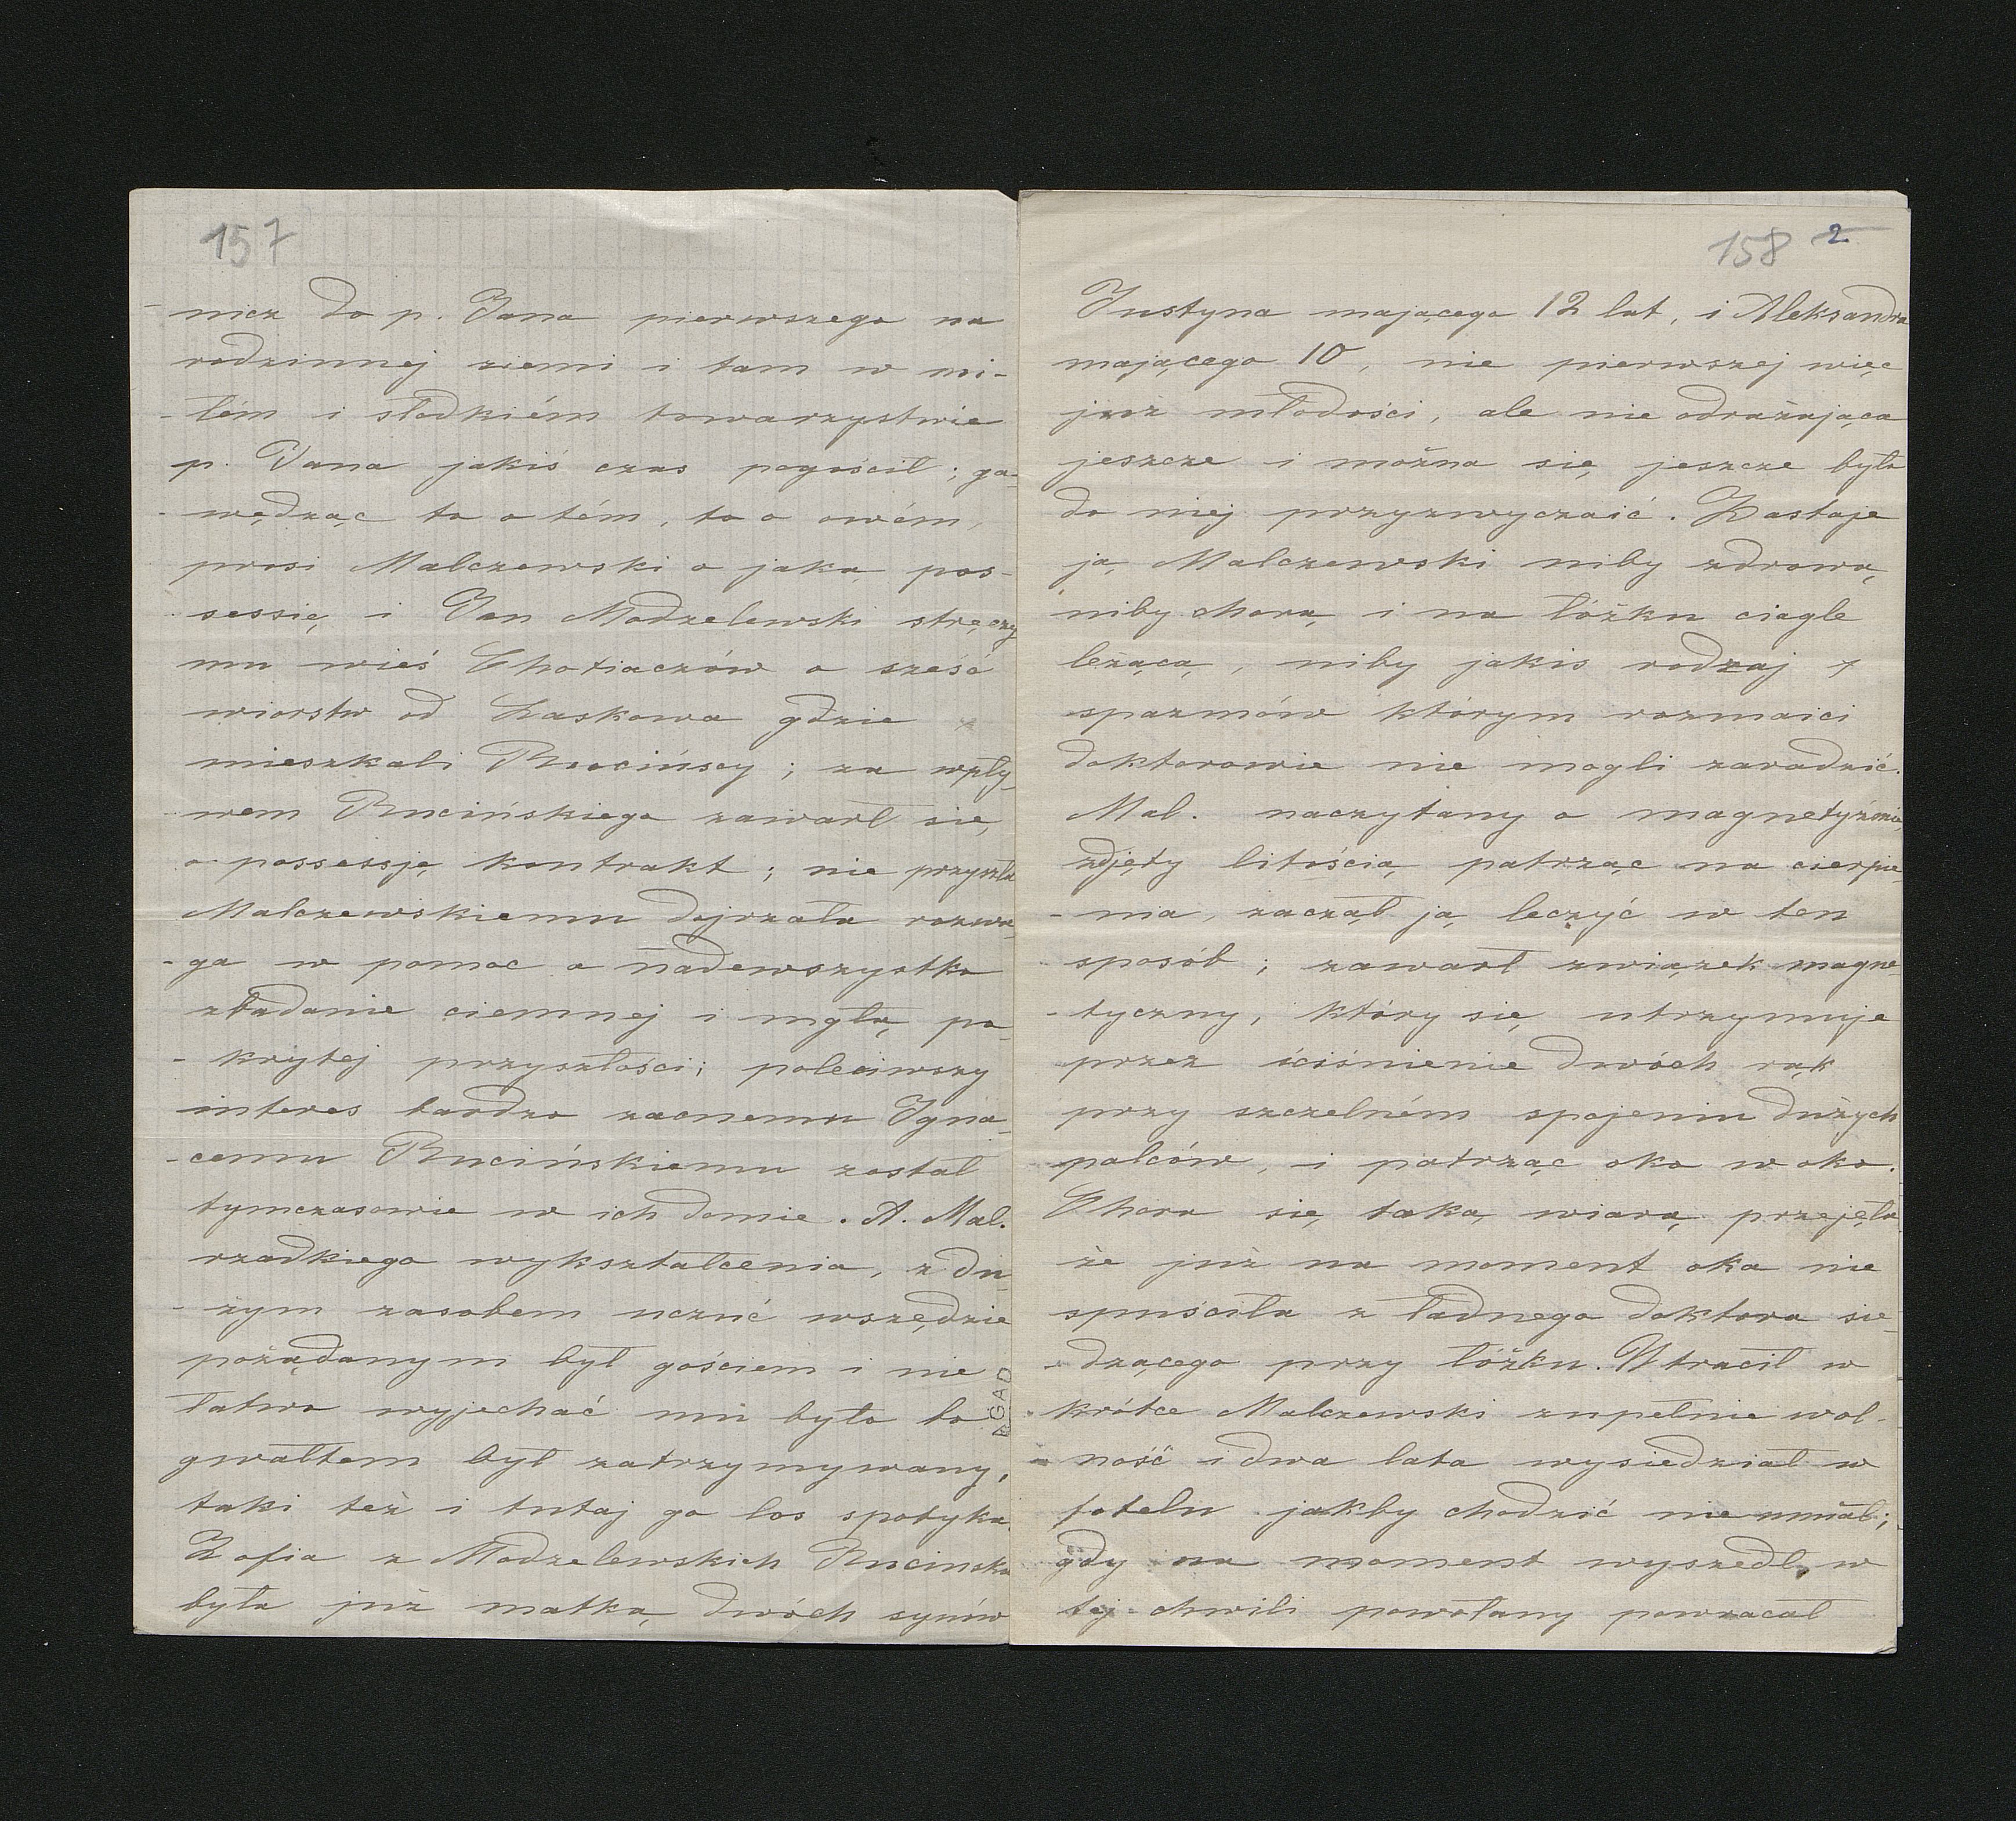 157
nicz do p. Jana pierwszego na
rodzinnej ziemi i tam w mi-
-łém i słodkiém towarzystwie
p. Jana jakiś czas pogościł; ga-
-wędząc to o tém, to o owém,
prosi Malczewski o jaką pos-
sessię i Jan Modzelewski stręczy
mu wieś Chotiaczów o sześć
wiorstw od Laskowa gdzie
mieszkali Rucińscy; za wpły-
wem Rucińskiego zawarł się
o possessję kontrakt; nie przyszła
Malczewskiemu dojrzała rozwa-
-ga w pomoc a nadewszystko
zbadanie ciemnej i mgłą po-
-krytej przyszłości; poleciwszy
interes bardzo zacnemu Igna-
-cemu Rucińskiemu został
tymczasowie w ich domie. A. Mal.
rzadkiego wykształcenia, z du-
-żym zasobem uczuć wszędzie
pożądanym był gościem i nie
łatwo wyjechać mu było bo
gwałtem był zatrzymywany,
taki też i tutaj go los spotyka.
Zofia z Modzelewskich Rucinska
była już matką dwóch synów
AGAD
158 2
Justyna mającego 12 lat, i Aleksandra
mającego 10, nie pierwszej więc
już młodości, ale nie odrażająca
jeszcze i można się jeszcze było
do niej przyzwyczaić. Zastaje
ją Malczewski niby zdrową,
niby chorą i na łóżku ciagle
leżącą, niby jakis rodzaj
spazmów którym rozmaici
doktorowie nie mogli zaradzić.
Mal. naczytany o magnetyzmie,
zdjęty litością patrząc na cierpie-
-nia, zaczął ją leczyć w ten
sposób; zawarł związek magne-
-tyczny, który się utrzymuje
przez iciśnienie dwóch rąk
przy szczelném spojeniu dużych
palców, i patrząc oko w oko.
Chora się taką wiarą przejęła
że już na moment oka nie
spuściła z ładnego doktora sie-
-dzącego przy łóżku. Utracił w
krótce Malczewski zupełnie wol-
-ność i dwa lata wysiedział w
fotelu jakby chodzić nie umiał;
gdy na moment wyszedł, w
tej chwili powołany powracał